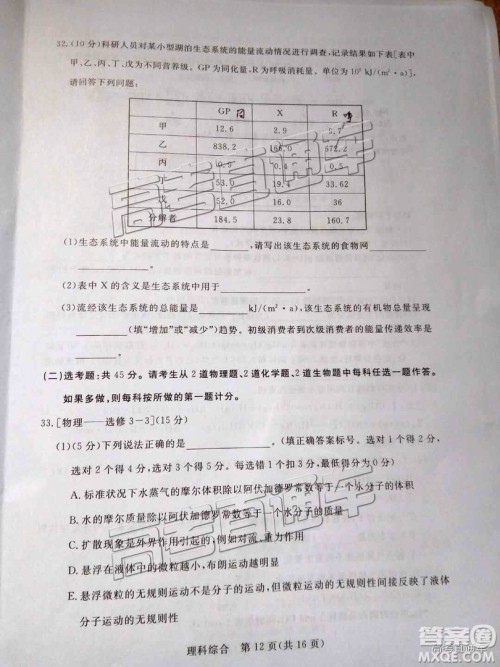 32.(10分)科研人员对某小型湖泊生态系统的能量流动情况进行调查,记录结果如下表[表中
甲、乙、丙、丁、戊为不同营养级。GP为同化量,R为呼吸消耗量。单位为10³ kJ/(m²·a)],
请回答下列问题:
GP 同 X R 呼
甲 12.6 2.9
乙 838.2
丙
53.0 19.4 33.62
戊 52.0 16.0 36
分解者 184.5 23.8 160.7
(1)生态系统中能量流动的特点是______,请写出该生态系统的食物网
______。
(2)表中X的含义是生态系统中用于______。
(3)流经该生态系统的总能量是______kJ/(m²·a),该生态系统的有机物总量呈现
______(填“增多”或“减少”)趋势。初级消费者到次级消费者的能量传递效率是
______。
(二)选考题:共45分。请考生从2道物理题、2道化学题、2道生物题中每科任选一题作答。
如果多做,则每科按所做的第一题计分。
33.[物理——选修3-3](15分)
(1)(5分)下列说法正确的是______。(填正确答案标号。选对1个得2分,
选对2个得4分,选对3个得5分。每选错1个扣3分,最低得分为0分)
A.标准状况下水蒸气的摩尔体积除以阿伏加德罗常数等于一个水分子的体积
B.水的摩尔质量除以阿伏加德罗常数等于一个水分子的质量
C.扩散现象是外界作用引起的
D.悬浮在液体中的微粒越小,布朗运动越明显
E.悬浮微粒的无规则运动不是分子的运动,但微粒运动的无规则性间接反映了液体
分子运动的无规则性
理科综合 第12页(共16页)
答案圈
MXQE.COM